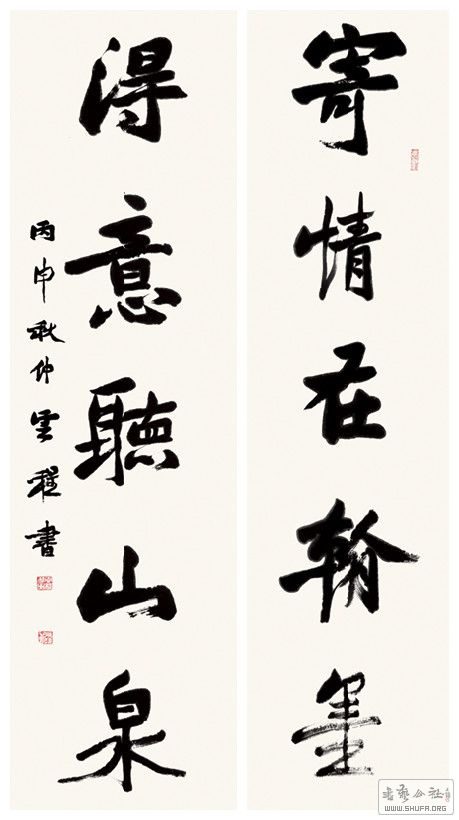 寄情在翰墨
得意聽山泉
丙申秋仲雲程書
書藝公社
WWW.SHUFA.ORG